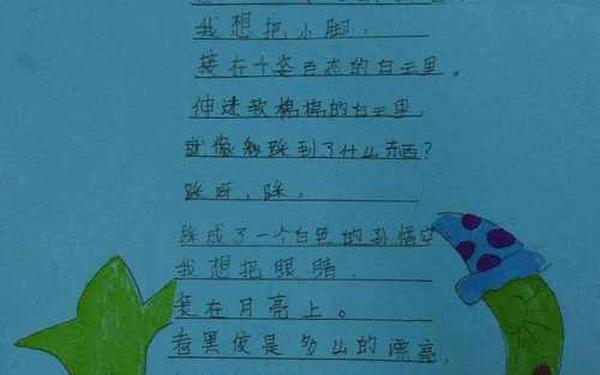 我想把小脚，
接在千姿百态的白云里。
伸进软棉棉的白云里
就像踩到了什么东西？
踩呀，踩，
踩成了一个白色的孙悟空
我想把眼睛，
接在月亮上。
看黑夜是多么的漂亮，